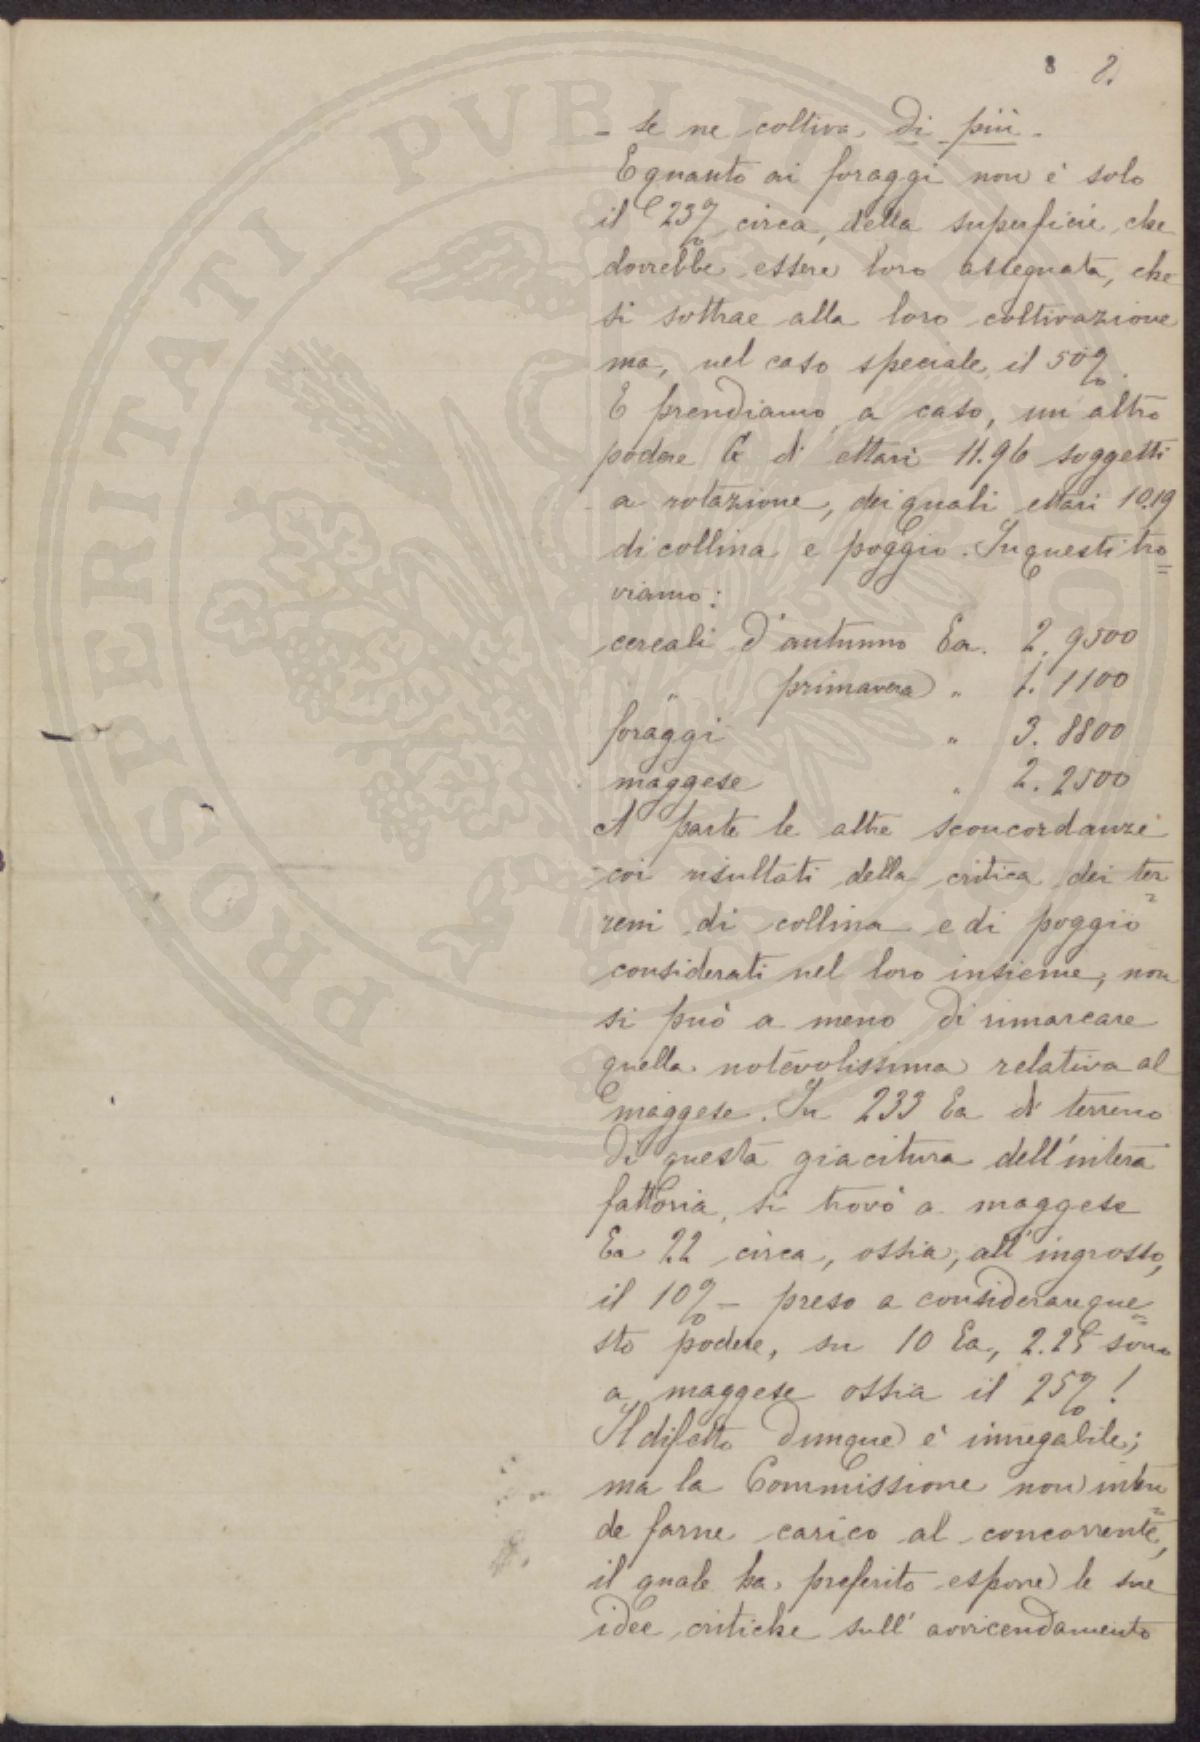 8 8.
- se ne coltiva di più -
E quanto ai foraggi non è solo
il 23% circa, della superficie che
dovrebbe essere loro assegnata, che
si sottrae alla loro coltivazione
ma, nel caso speciale, il 50%.
E prendiamo, a caso, un altro
podere G di ettari 11.96 soggetti
a rotazione, dei quali ettari 10.19
di collina e poggio. In questi tro=
viamo:
cereali d'autunno Ea. 2.9500
" primavera " 1.1100
foraggi " 3.8800
maggese " 2.2500
A parte le altre sconcordanze
coi risultati della critica dei ter=
reni di collina e di poggio
considerati nel loro insieme, non
si può a meno di rimarcare
quella notevolissima relativa al
maggese. In 233 Ea di terreno
di questa giacitura dell'intera
fattoria, si trovò a maggese
Ea 22 circa, ossia, all'ingrosso,
il 10% - preso a considerare que=
sto podere, su 10 Ea, 2.25 sono
a maggese ossia il 25%!
Il difetto dunque è innegabile;
ma la Commissione non inten=
de farne carico al concorrente,
il quale ha preferito esporre le sue
idee critiche sull'avvicendamento
PROSPERITATI PUBLICAE